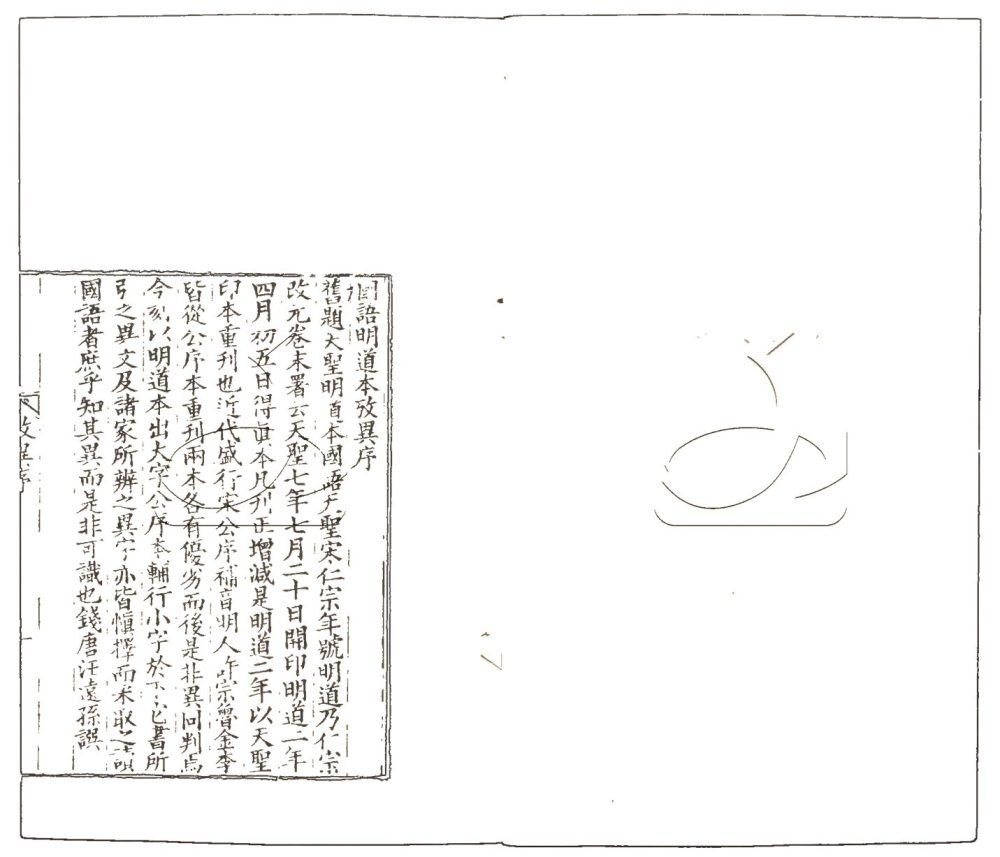 國語明道本攷異序
舊題天聖明道本國語天聖宋仁宗年號明道乃仁宗
改元卷末署云天聖七年七月二十日開印明道二年
四月初五日得真本凡刊正增減是明道二年以天聖
印本重刊也近代盛行宋公序補音明人許宗魯金李
皆從公序本重刊兩本各有優劣而後是非異同判焉
今刻以明道本出大字公序本輔行小字於下它書所
引之異文及諸家所辨之異字亦皆慎擇而采取之讀
國語者庶乎知其異而是非可識也錢唐汪遠孫譔
攷異序